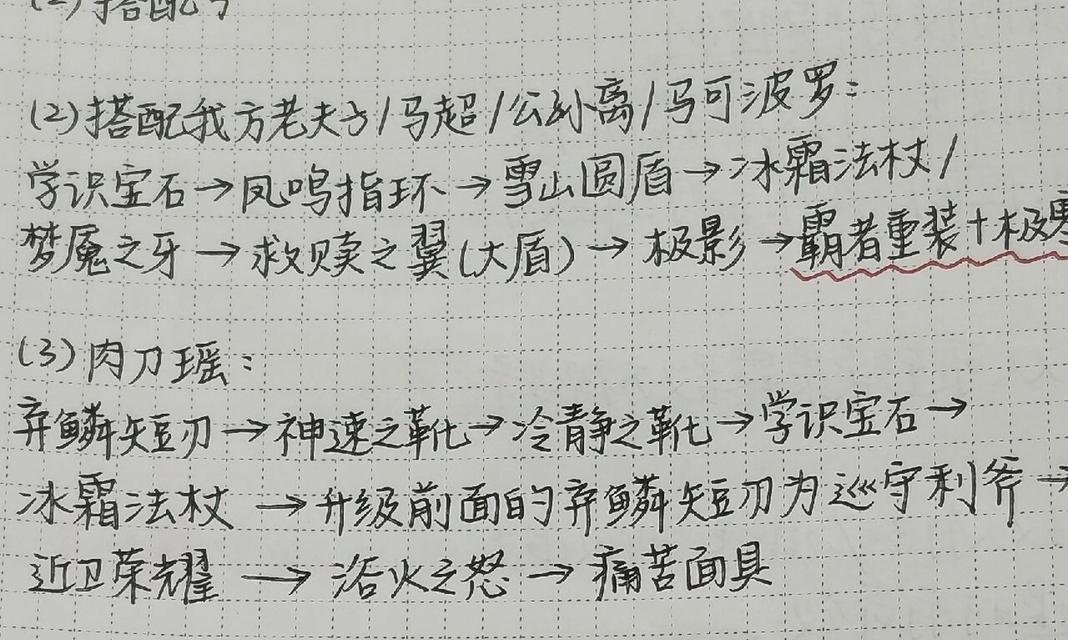 (2)搭配我方老夫子/马超/公孙离/马可波罗:
学识宝石→凤鸣指环→雪山圆盾→冰霜法杖/
梦魇之牙→救赎之翼(大盾)→极影→霸者重装+极寒
(3)肉刀瑶:
弃鳞短刃→神速之靴→冷静之靴→学识宝石→
冰霜法杖→升级前面的弃鳞短刃为巡守利斧→
近卫荣耀→浴火之怒→痛苦面具